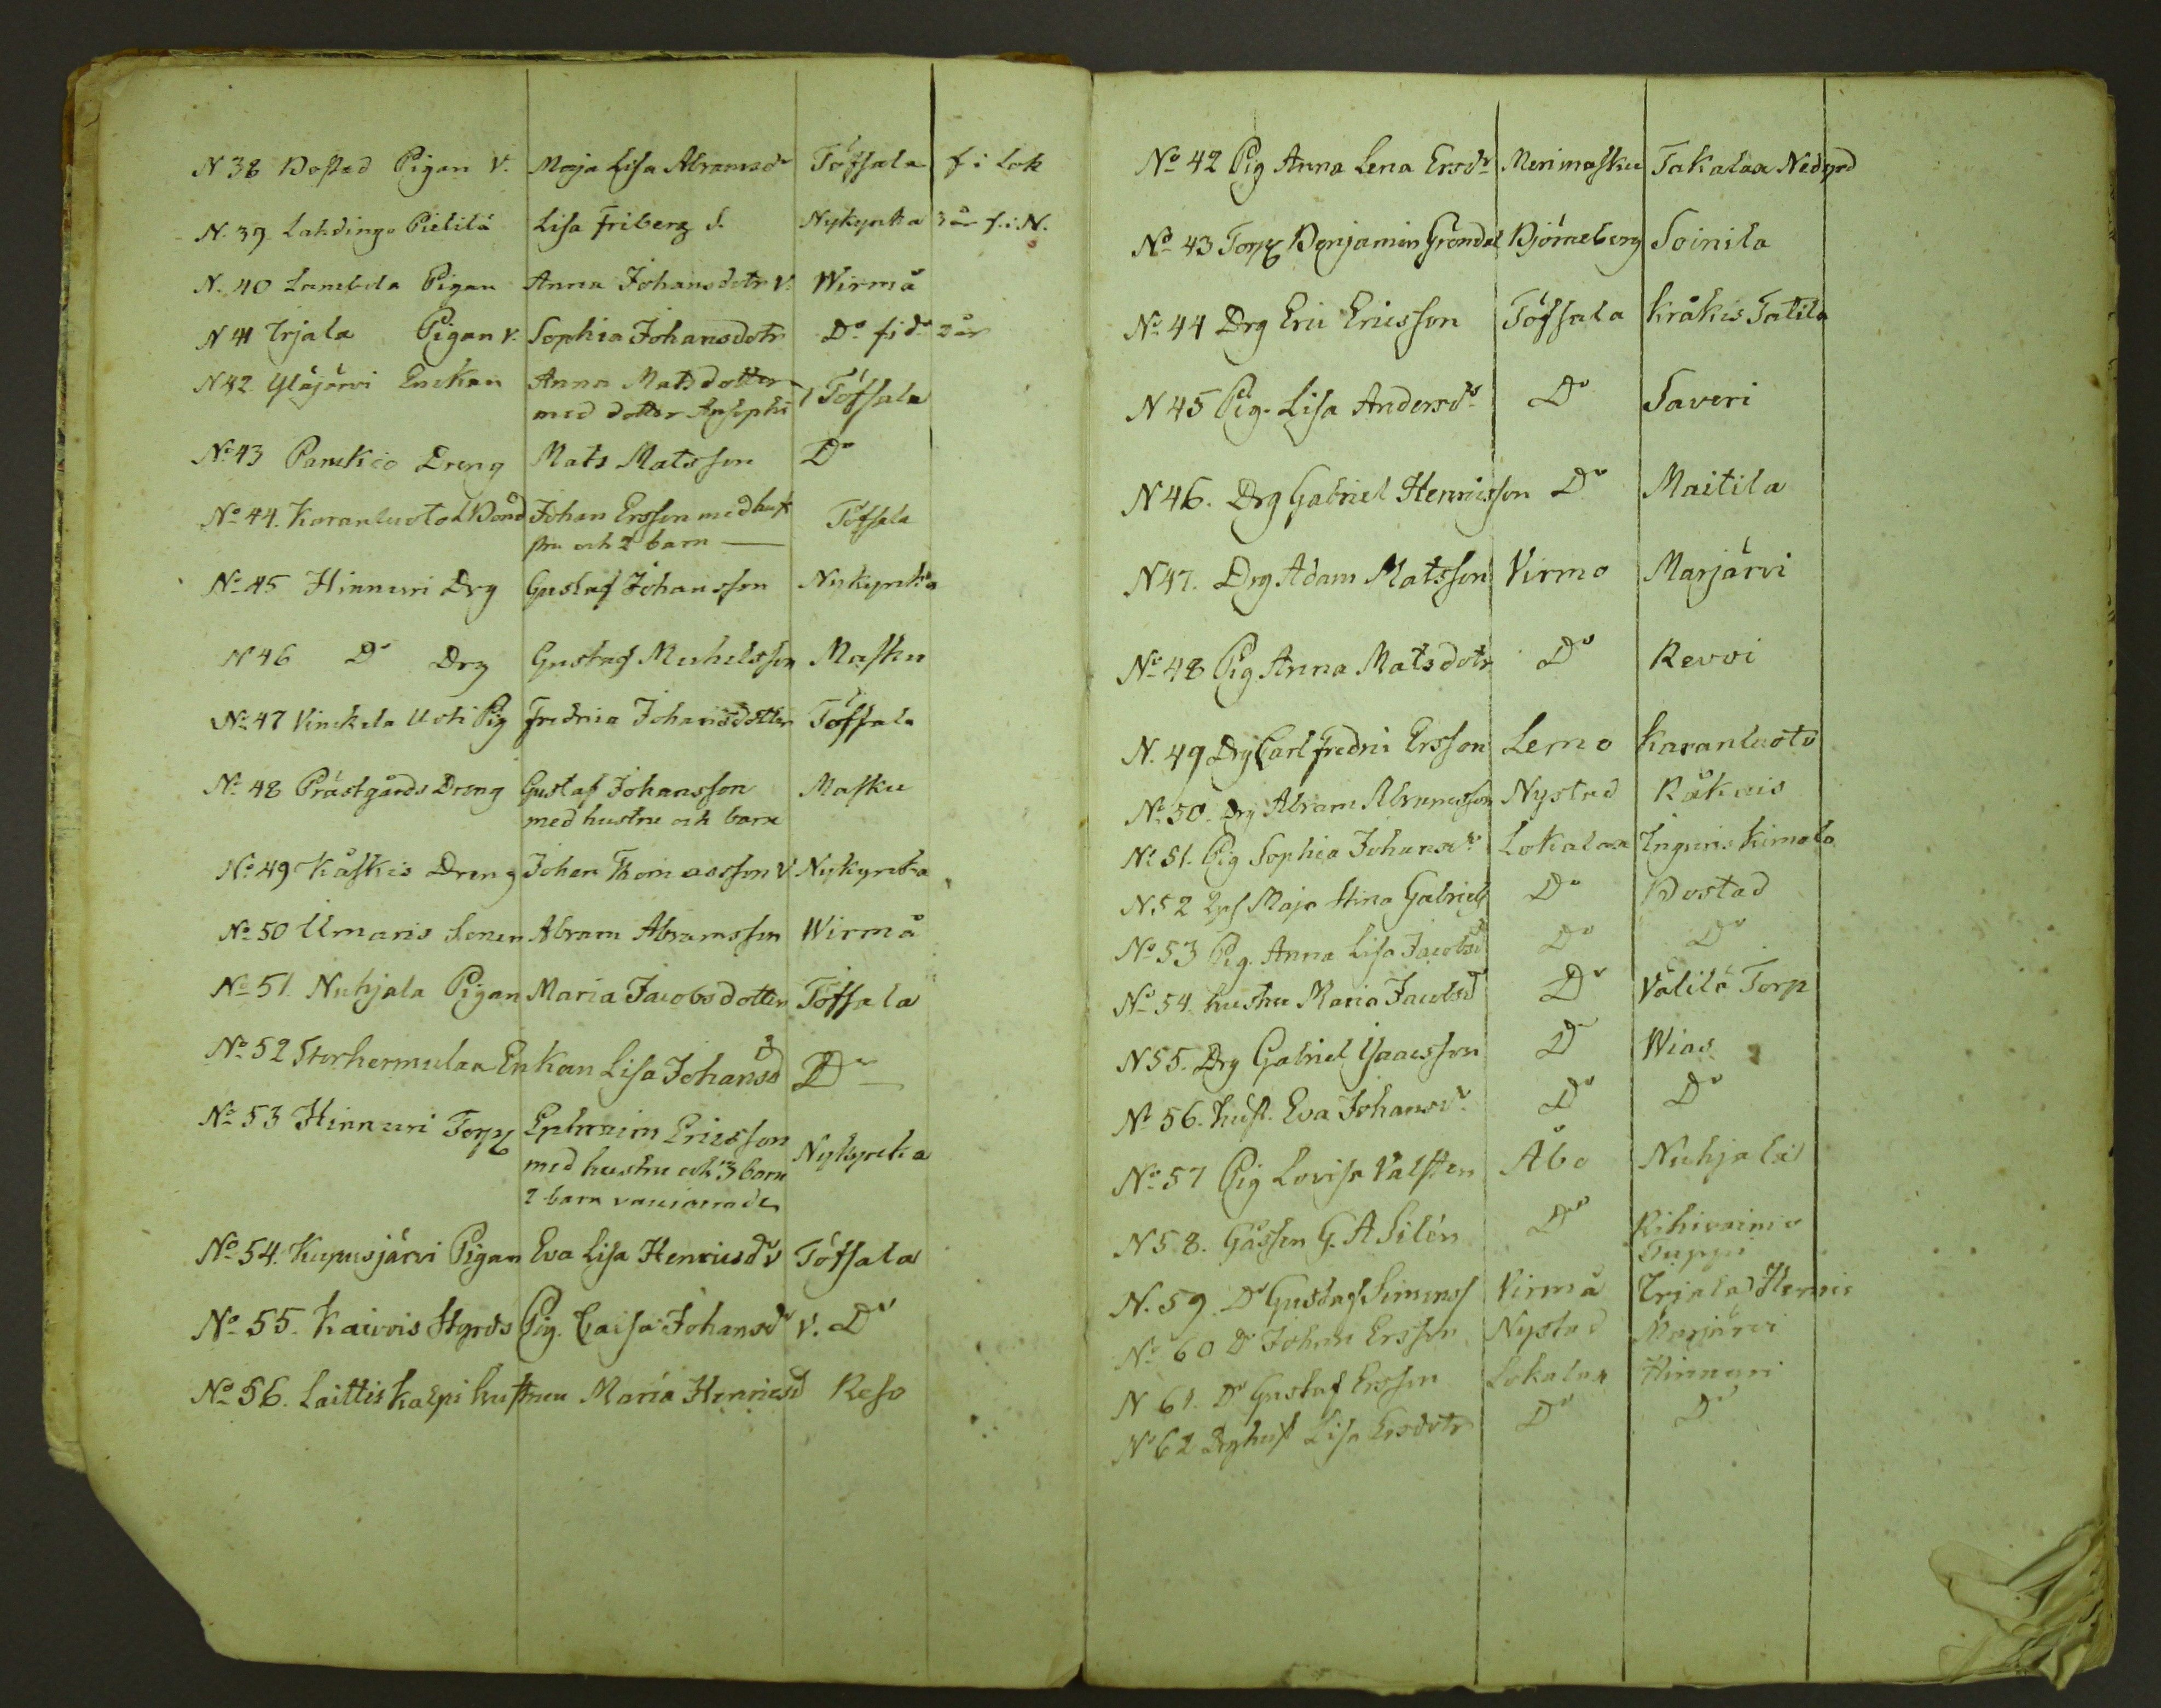 N 38 Bostad Pigan V. Maja Lisa Abramsdr Töfsala f i Lok
N. 39. Lahdingo Pielilä Lisa Friberg d. Nykyrka 3 år f. i N.
N. 40 Lambila Pigan Anna Johansdotr V. Wirmå
N 41 Irjala Pigan V. Sophia Johansdotr Do f i do 2 år
N 42. Yläjärvi Enckan Anna Matsdotter
med dotter Töfsala
No 43 Panckio Dreng Mats Matsson Do
No 44. Karanluoto Bond Johan Ersson med hust
stru och 2 barn — Töfsala
No 45 Hinnuri Drg Gustaf Johansson Nykyrka
N 46 Do Drg Gustaf Michelsson Masku
No 47 Vinckila Uoti Pig Fredrica Johansdotter Töfsala
No 48 Prästgårds Dreng Gustaf Johansson Masku
med hustru och barn
No 49 Kåskis Dreng Johan Thomasson V Nykyrka
No 50 Umaris Sonen Abram Abramsson Wirmå
No 51. Nuhjala Pigan Maria Jacobsdotter Töfsala
No 52 Storhermulax Enkan Lisa Johansd Do
No 53 Hinnuri Torp Ephraim Ericsson
med hustru och 3 barn Nykyrka
2 barn vaccinerade
No 54. Kupusjärvi Pigan Eva Lisa Henricsdr V Töfsala
No 55. Kaivois Hgrds Pig. Caisa Johansdr V. Do
No 56. Laittis Kalpi hustrun Maria Henricsd Reso
No 42 Pig Anna Lena Ersdr Merimasku Takalax Nedgrd
No 43 Torp Benjamin Gröndal Björneborg Soinila
No 44 Drg Eric Ericsson Töfsala Kråkis Tatila
N 45 Pig. Lisa Andersdr Do Saveri
N 46. Drg Gabriel Henricsson Do Maitila
N 47. Drg Adam Matsson Virmo Marjärvi
No 48 Pig Anna Matsdotr Do Revoi
N. 49 Drg Carl Fredric Ersson Lemo Karanluoto
No 50. Drg Abram Abramsson Nystad Råkois
No 51. Pig Sophia Johansdr Lokalax Inguris Kimala
N. 52 Maja Stina Gabriels Do Bostad
No 53 Pig. Anna Lisa Jacobsd Do Do
No 54. hustru Maria Jacobsd Do Välilä Torp
N 55. Drg Gabriel Isaacsson Do Wias
No 56. hust. Eva Johansdr Do Do
No 57 Pig Lovisa Valsten Åbo Nuhjala
N 58. Gossen G. A Silén Do Rihivainio
Tuppi
N. 59. Do Gustaf Simons Virmå Irjala Hernis
No 60 Do Johan Ersson Nystad Marjärvi
N 61. Do Gustaf Ersson Lokalax Hinnuri
No 62 Drg hust Lisa Ersdotr Do Do